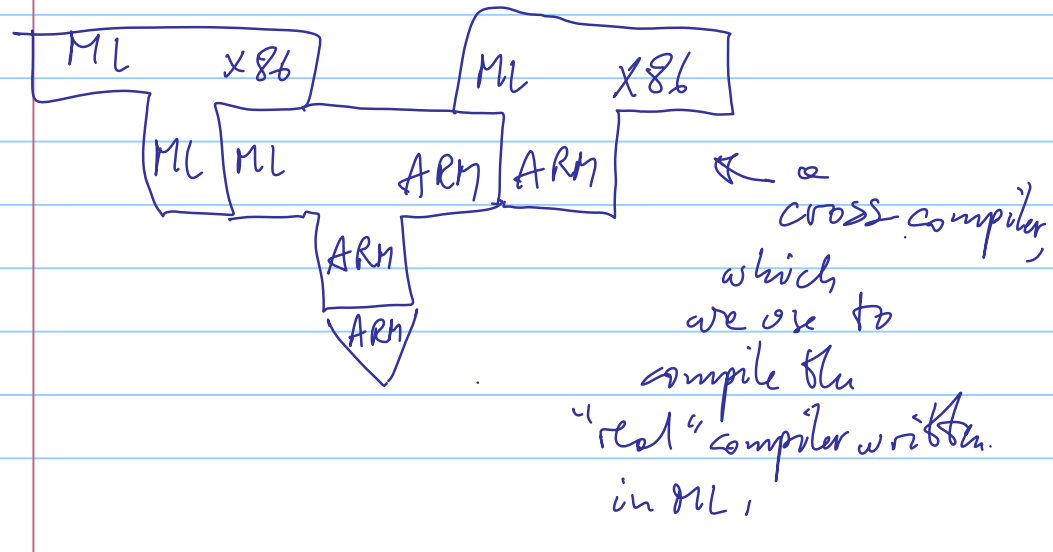 ML X86 ML X86
ML ML ARM ARM
ARM
ARM
a
cross-compiler,
which
we use to
compile the
"real" compiler written
in ML,